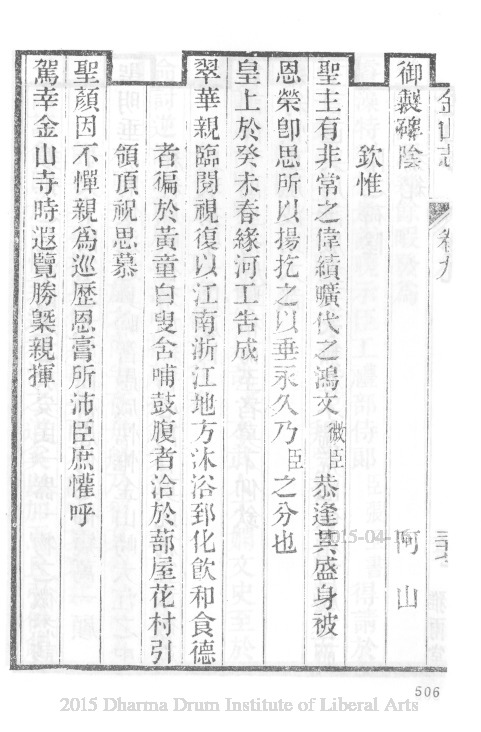 金山志 卷九
御製碑陰 阿山
欽惟
聖主有非常之偉績曠代之鴻文微臣恭逢其盛身被
恩榮卽思所以揚扢之以垂永久乃臣之分也
皇上於癸未春緣河工告成
翠華親臨閱視復以江南浙江地方沐浴郅化飮和食德
者徧於黃童白叟含哺鼓腹者洽於蔀屋花村引
領頂祝思慕
聖顏因不憚親爲巡歷恩膏所沛臣庶懽呼
駕幸金山寺時遐覽勝槩親揮
2015-04-1
506
2015 Dharma Drum Institute of Liberal Arts